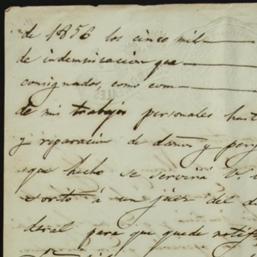 de 1856 los cinco mil
de indemnisacion que
consignados, como com
de mis trabajos personales hast
y reparacion de daños y perj
que hecho se servirá U.
escrito á un juez del d
para que quede notif